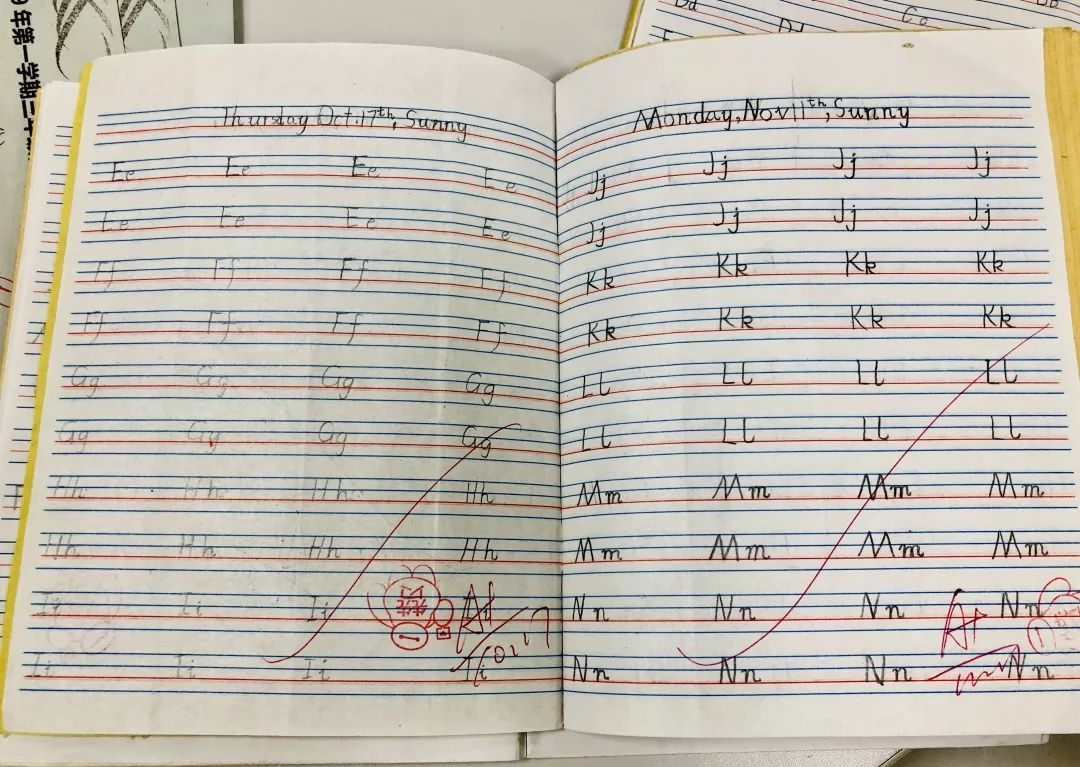 年第一学期二十
Dd
Dd
Cc
Bb
Thursday Oct.17th, Sunny
Ee Ee Ee Ee
Ee Ee Ee Ee
Ff Ff Ff Ff
Ff Ff Ff Ff
Gg Gg Gg Gg
Gg Gg Gg Gg
Hh Hh Hh Hh
Hh Hh Hh Hh
Ii Ii Ii
Ii Ii Ii Ii
A+
10.17
Monday, Nov 11th, Sunny
Jj Jj Jj Jj
Jj Jj Jj Jj
Kk Kk Kk Kk
Kk Kk Kk Kk
Ll Ll Ll Ll
Ll Ll Ll Ll
Mm Mm Mm Mm
Mm Mm Mm Mm
Nn Nn Nn Nn
Nn Nn Nn Nn
A+